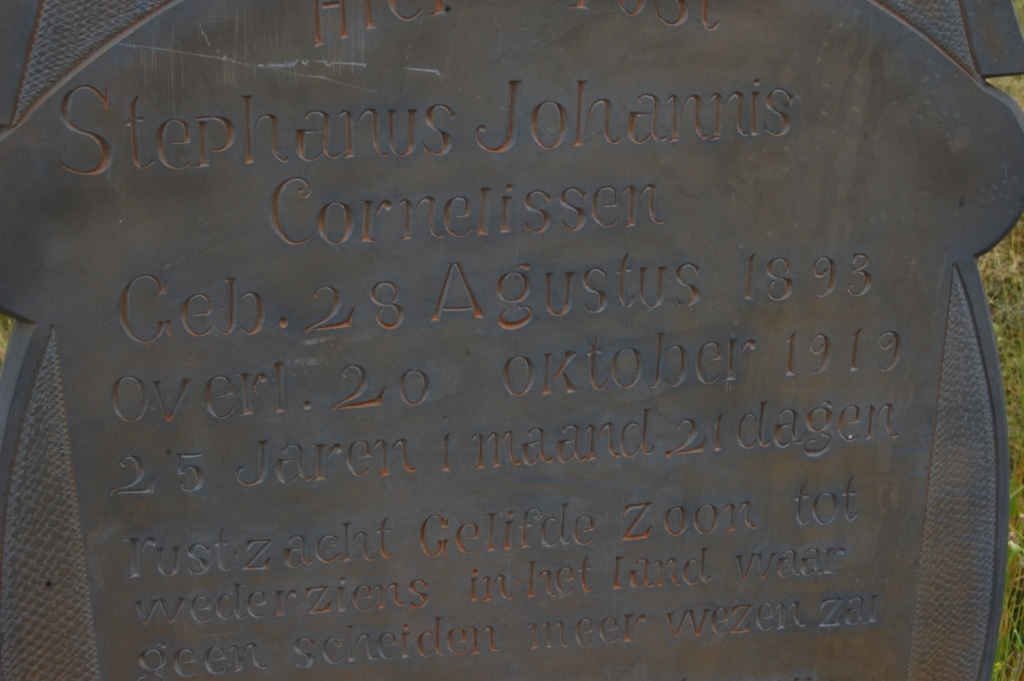 Hier rust
Stephanus Johannis
Cornelissen
Geb. 28 Agustus 1893
overl. 20 oktober 1919
25 Jaren 1 maand 21 dagen
rust zacht Gelifde Zoon tot
wederziens in het land waar
geen scheiden meer wezen zal